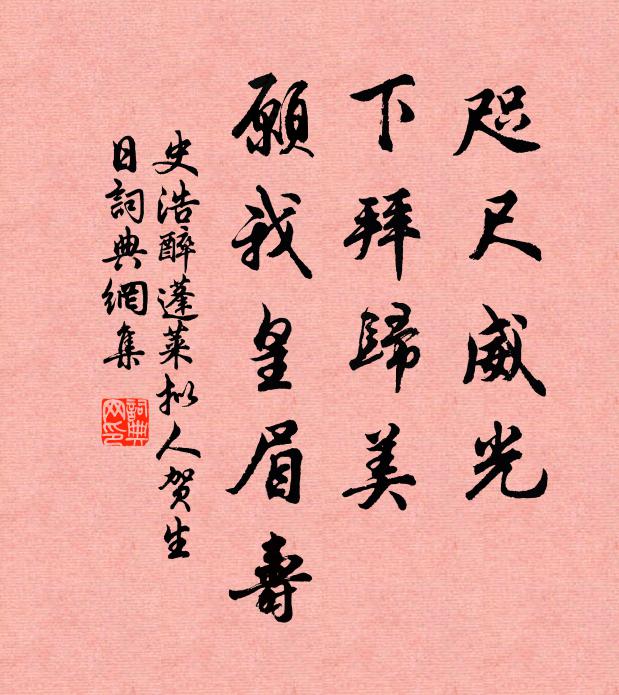 咫尺威光
下拜歸美
願我皇眉壽
史浩醉蓬萊拟人贺生
日詞典網集
詞典
网印